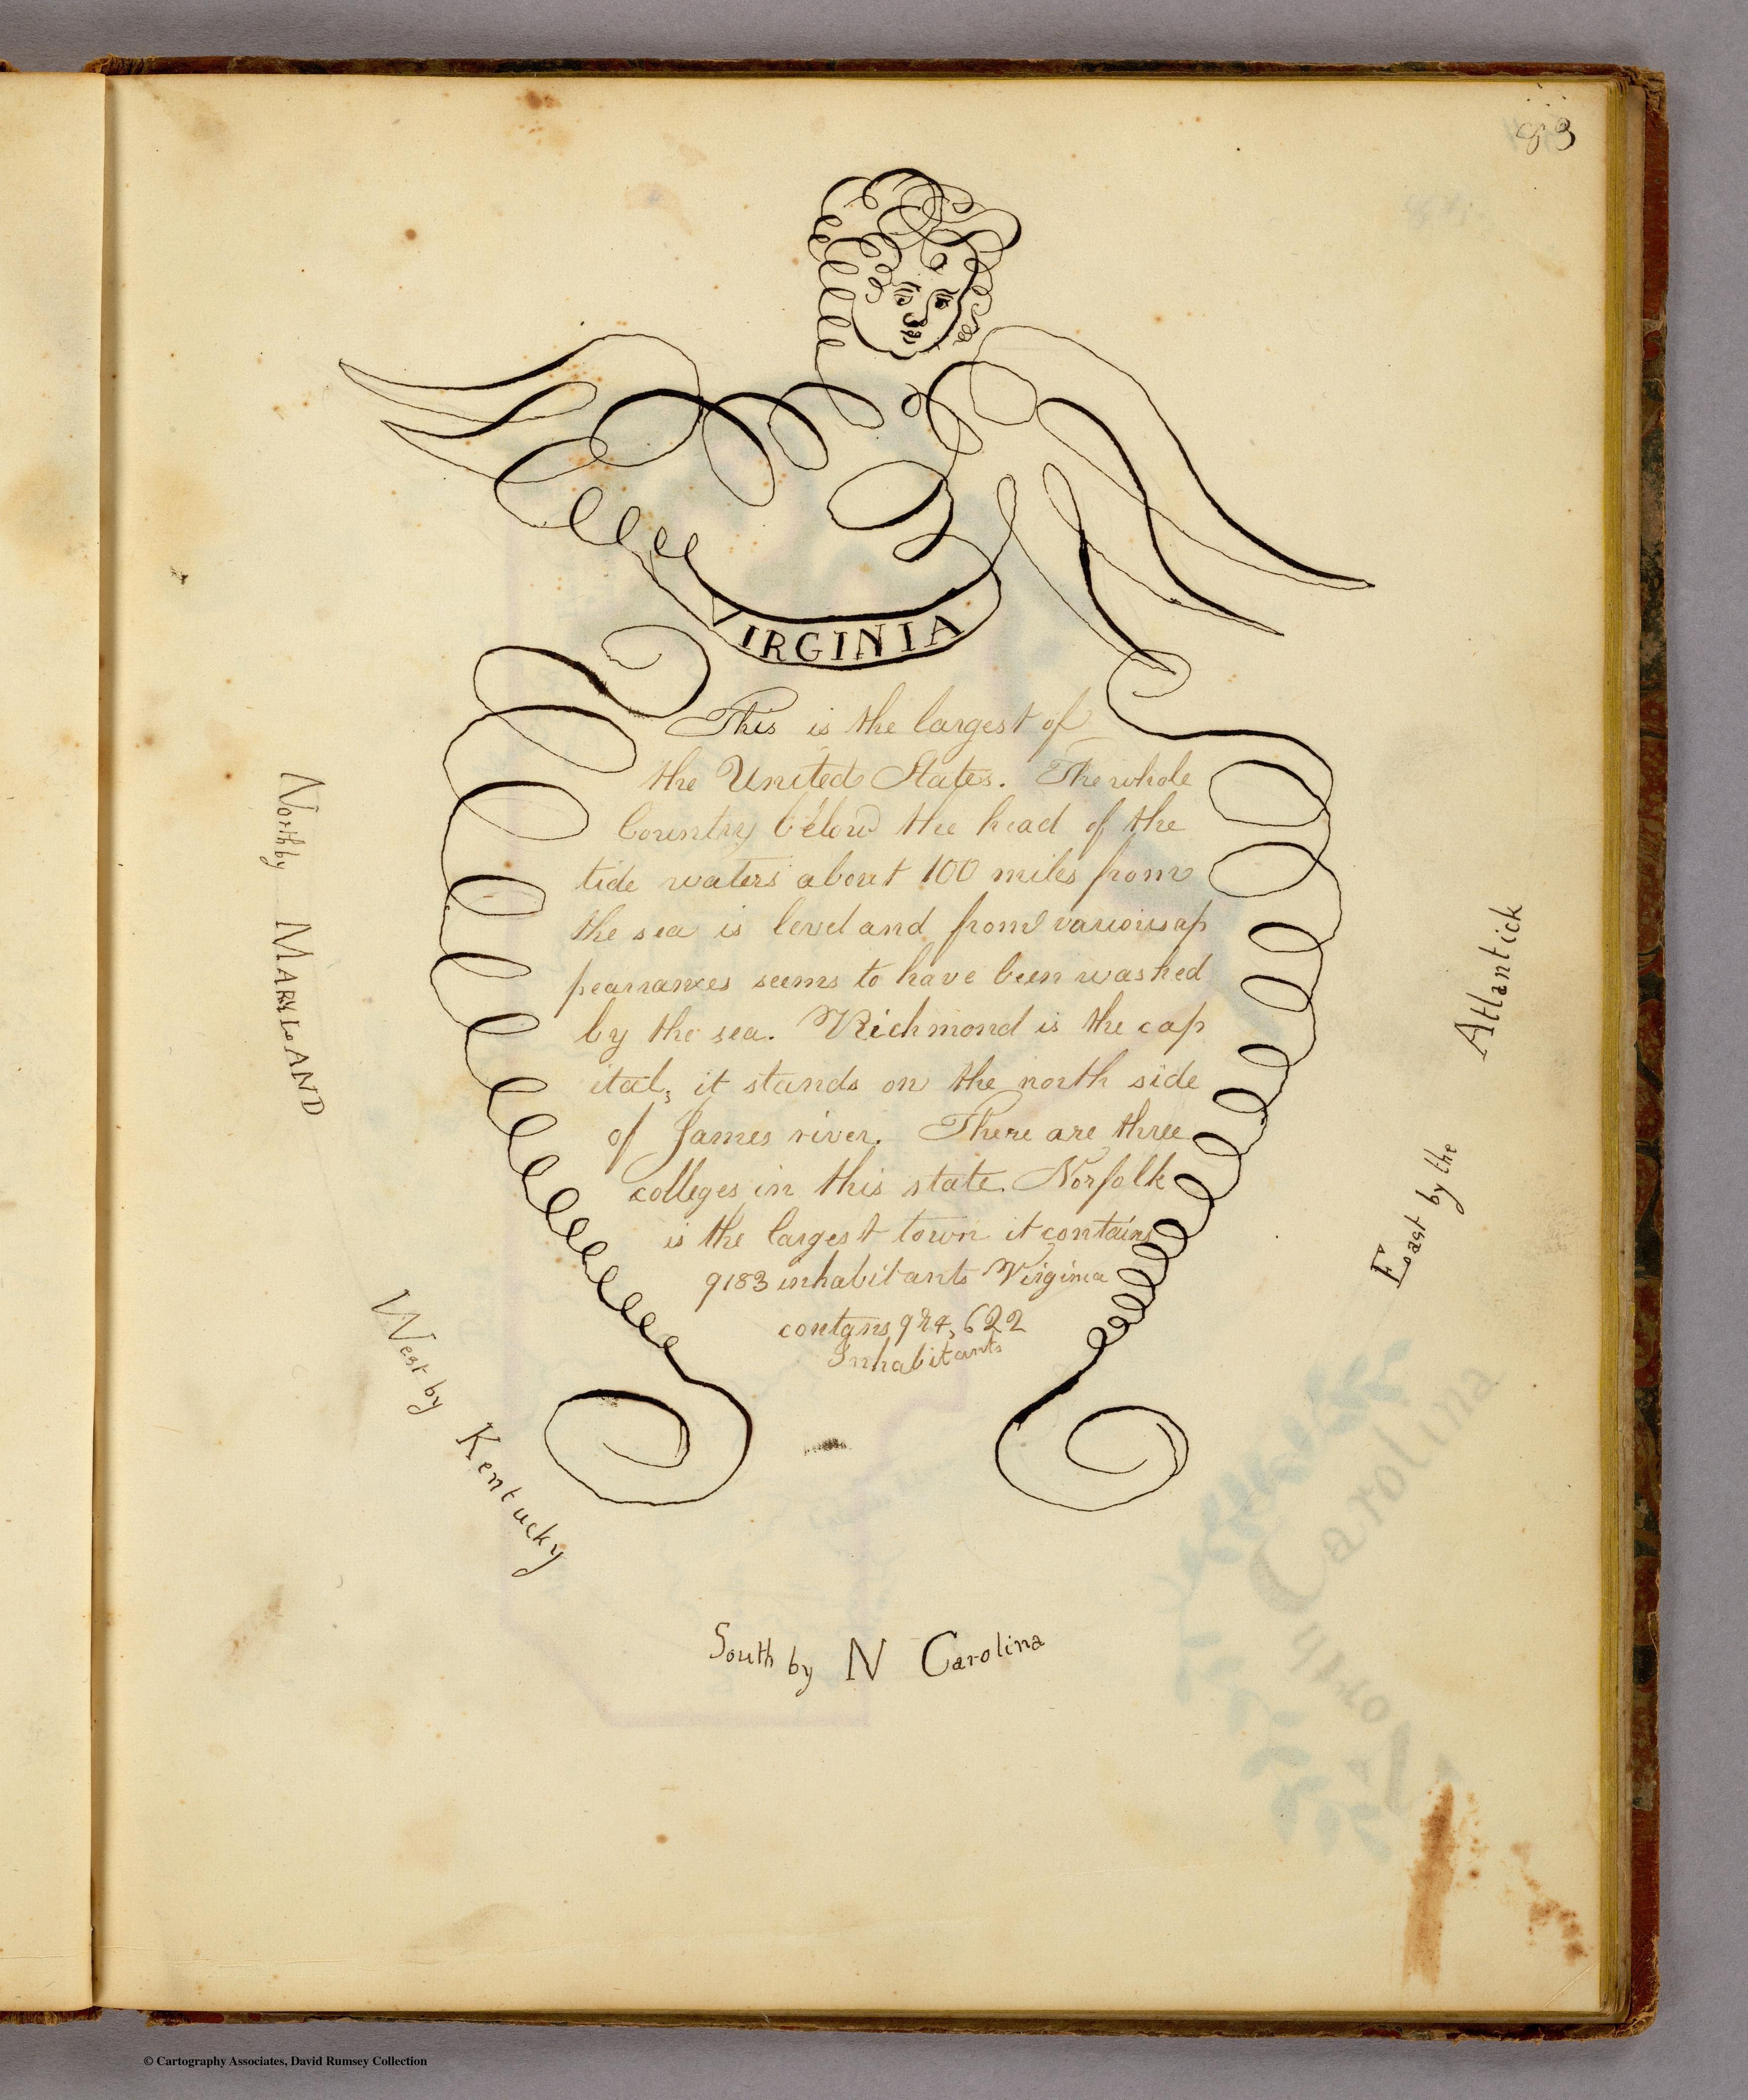 83
VIRGINIA
This is the largest of
the United States. The whole
Country below the head of the
tide waters about 100 miles from
the sea is level and from various ap
pearranxes seems to have been washed
by the sea. Richmond is the cap
ital, it stands on the north side
of James river. There are three
colleges in this state. Norfolk
is the largest town it contains
9183 inhabitants Virginia
contans 974,622
Inhabitants
North by MARYLAND
West by Kentucky
South by N Carolina
East by the Atlantick
North Carolina
© Cartography Associates, David Rumsey Collection